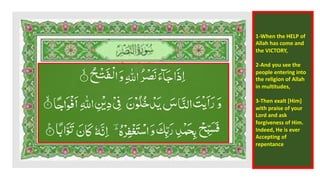 سُوْرَةُ النَّصْرِ
اِذَا جَآءَ نَصْرُ اللّٰهِ وَ الْفَتْحُ ۙ﴿۱﴾
وَ رَاَيْتَ النَّاسَ يَدْخُلُوْنَ فِيْ دِيْنِ اللّٰهِ اَفْوَاجًا ۙ﴿۲﴾
فَسَبِّحْ بِحَمْدِ رَبِّكَ وَ اسْتَغْفِرْهُ ؕ اِنَّهٗ كَانَ تَوَّابًا ﴿۳﴾
1-When the HELP of
Allah has come and
the VICTORY,
2-And you see the
people entering into
the religion of Allah
in multitudes,
3-Then exalt [Him]
with praise of your
Lord and ask
forgiveness of Him.
Indeed, He is ever
Accepting of
repentance